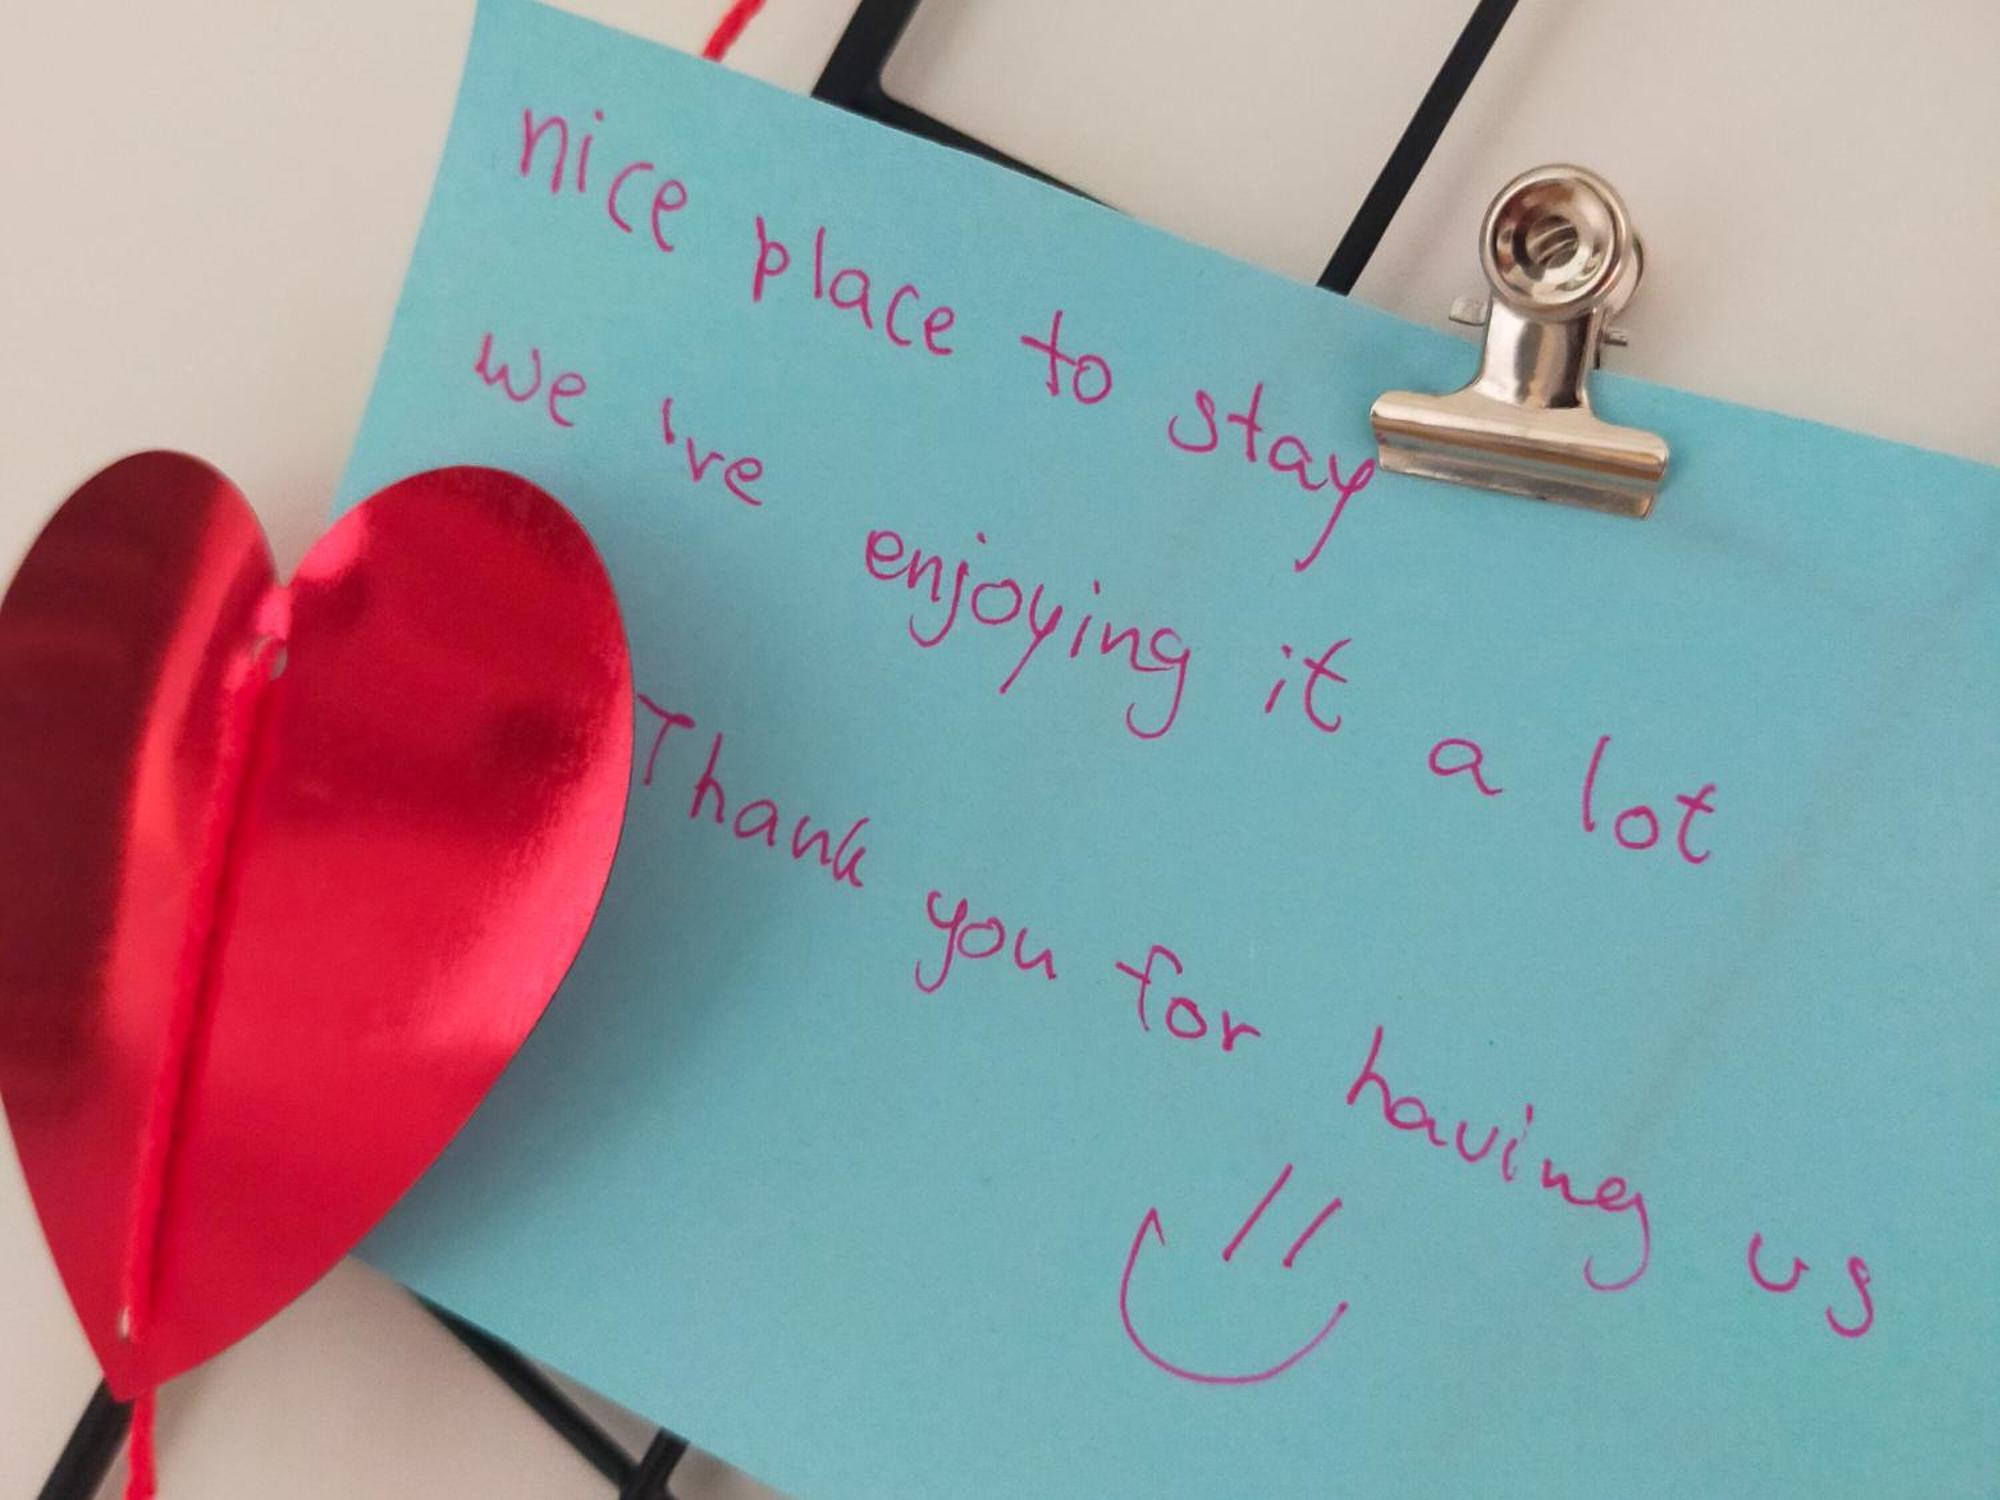 nice place to stay
we 've enjoying it a lot
Thank you for having us